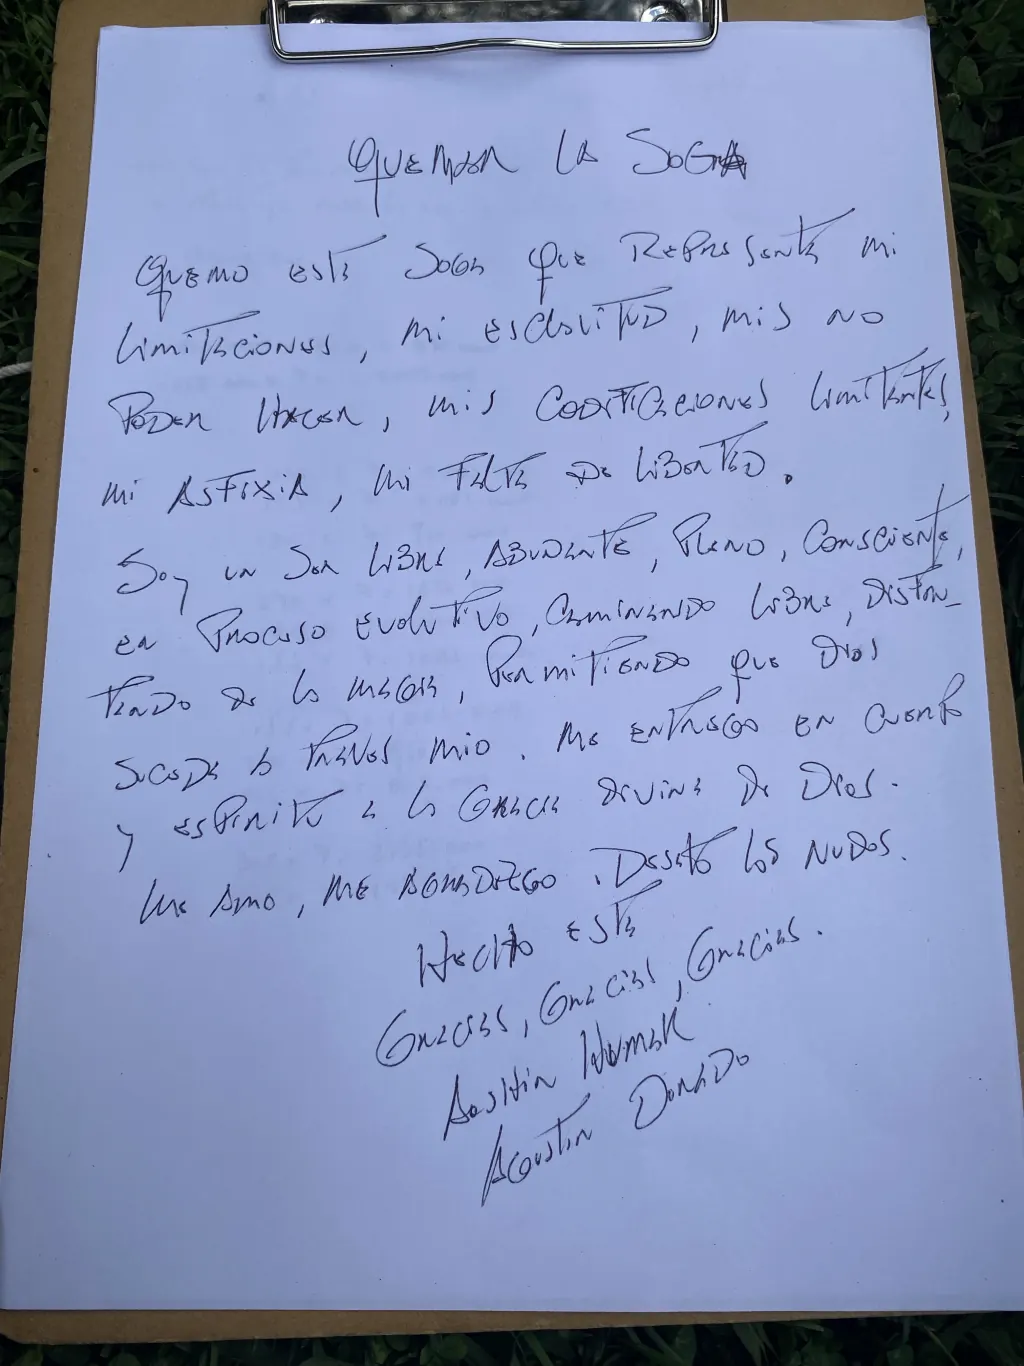 QUEMAR LA SOGA
QUEMO ESTA SOGA QUE REPRESENTA MI
LIMITACIONES, MI ESCLAVITUD, MIS NO
PODER HACER, MIS CODIFICACIONES LIMITANTES,
MI ASFIXIA, MI FALTA DE LIBERTAD.
SOY UN SER LIBRE, ABUNDANTE, PLENO, CONSCIENTE,
EN PROCESO EVOLUTIVO, CAMINANDO LIBRE, DISFRU-
TANDO DE LA MAGIA, PERMITIENDO QUE DIOS
SUCEDA A TRAVES MIO. ME ENTREGO EN CUERPO
Y ESPIRITU A LA GRACIA DIVINA DE DIOS.
ME AMO, ME AGRADEZCO. DESATO LOS NUDOS.
HECHO ESTA
GRACIAS, GRACIAS, GRACIAS.
AGUSTIN DORADO